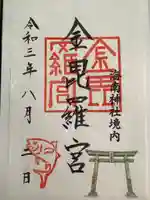 海南神社境内
金毘羅宮
金毘羅宮
令和三年八月 日